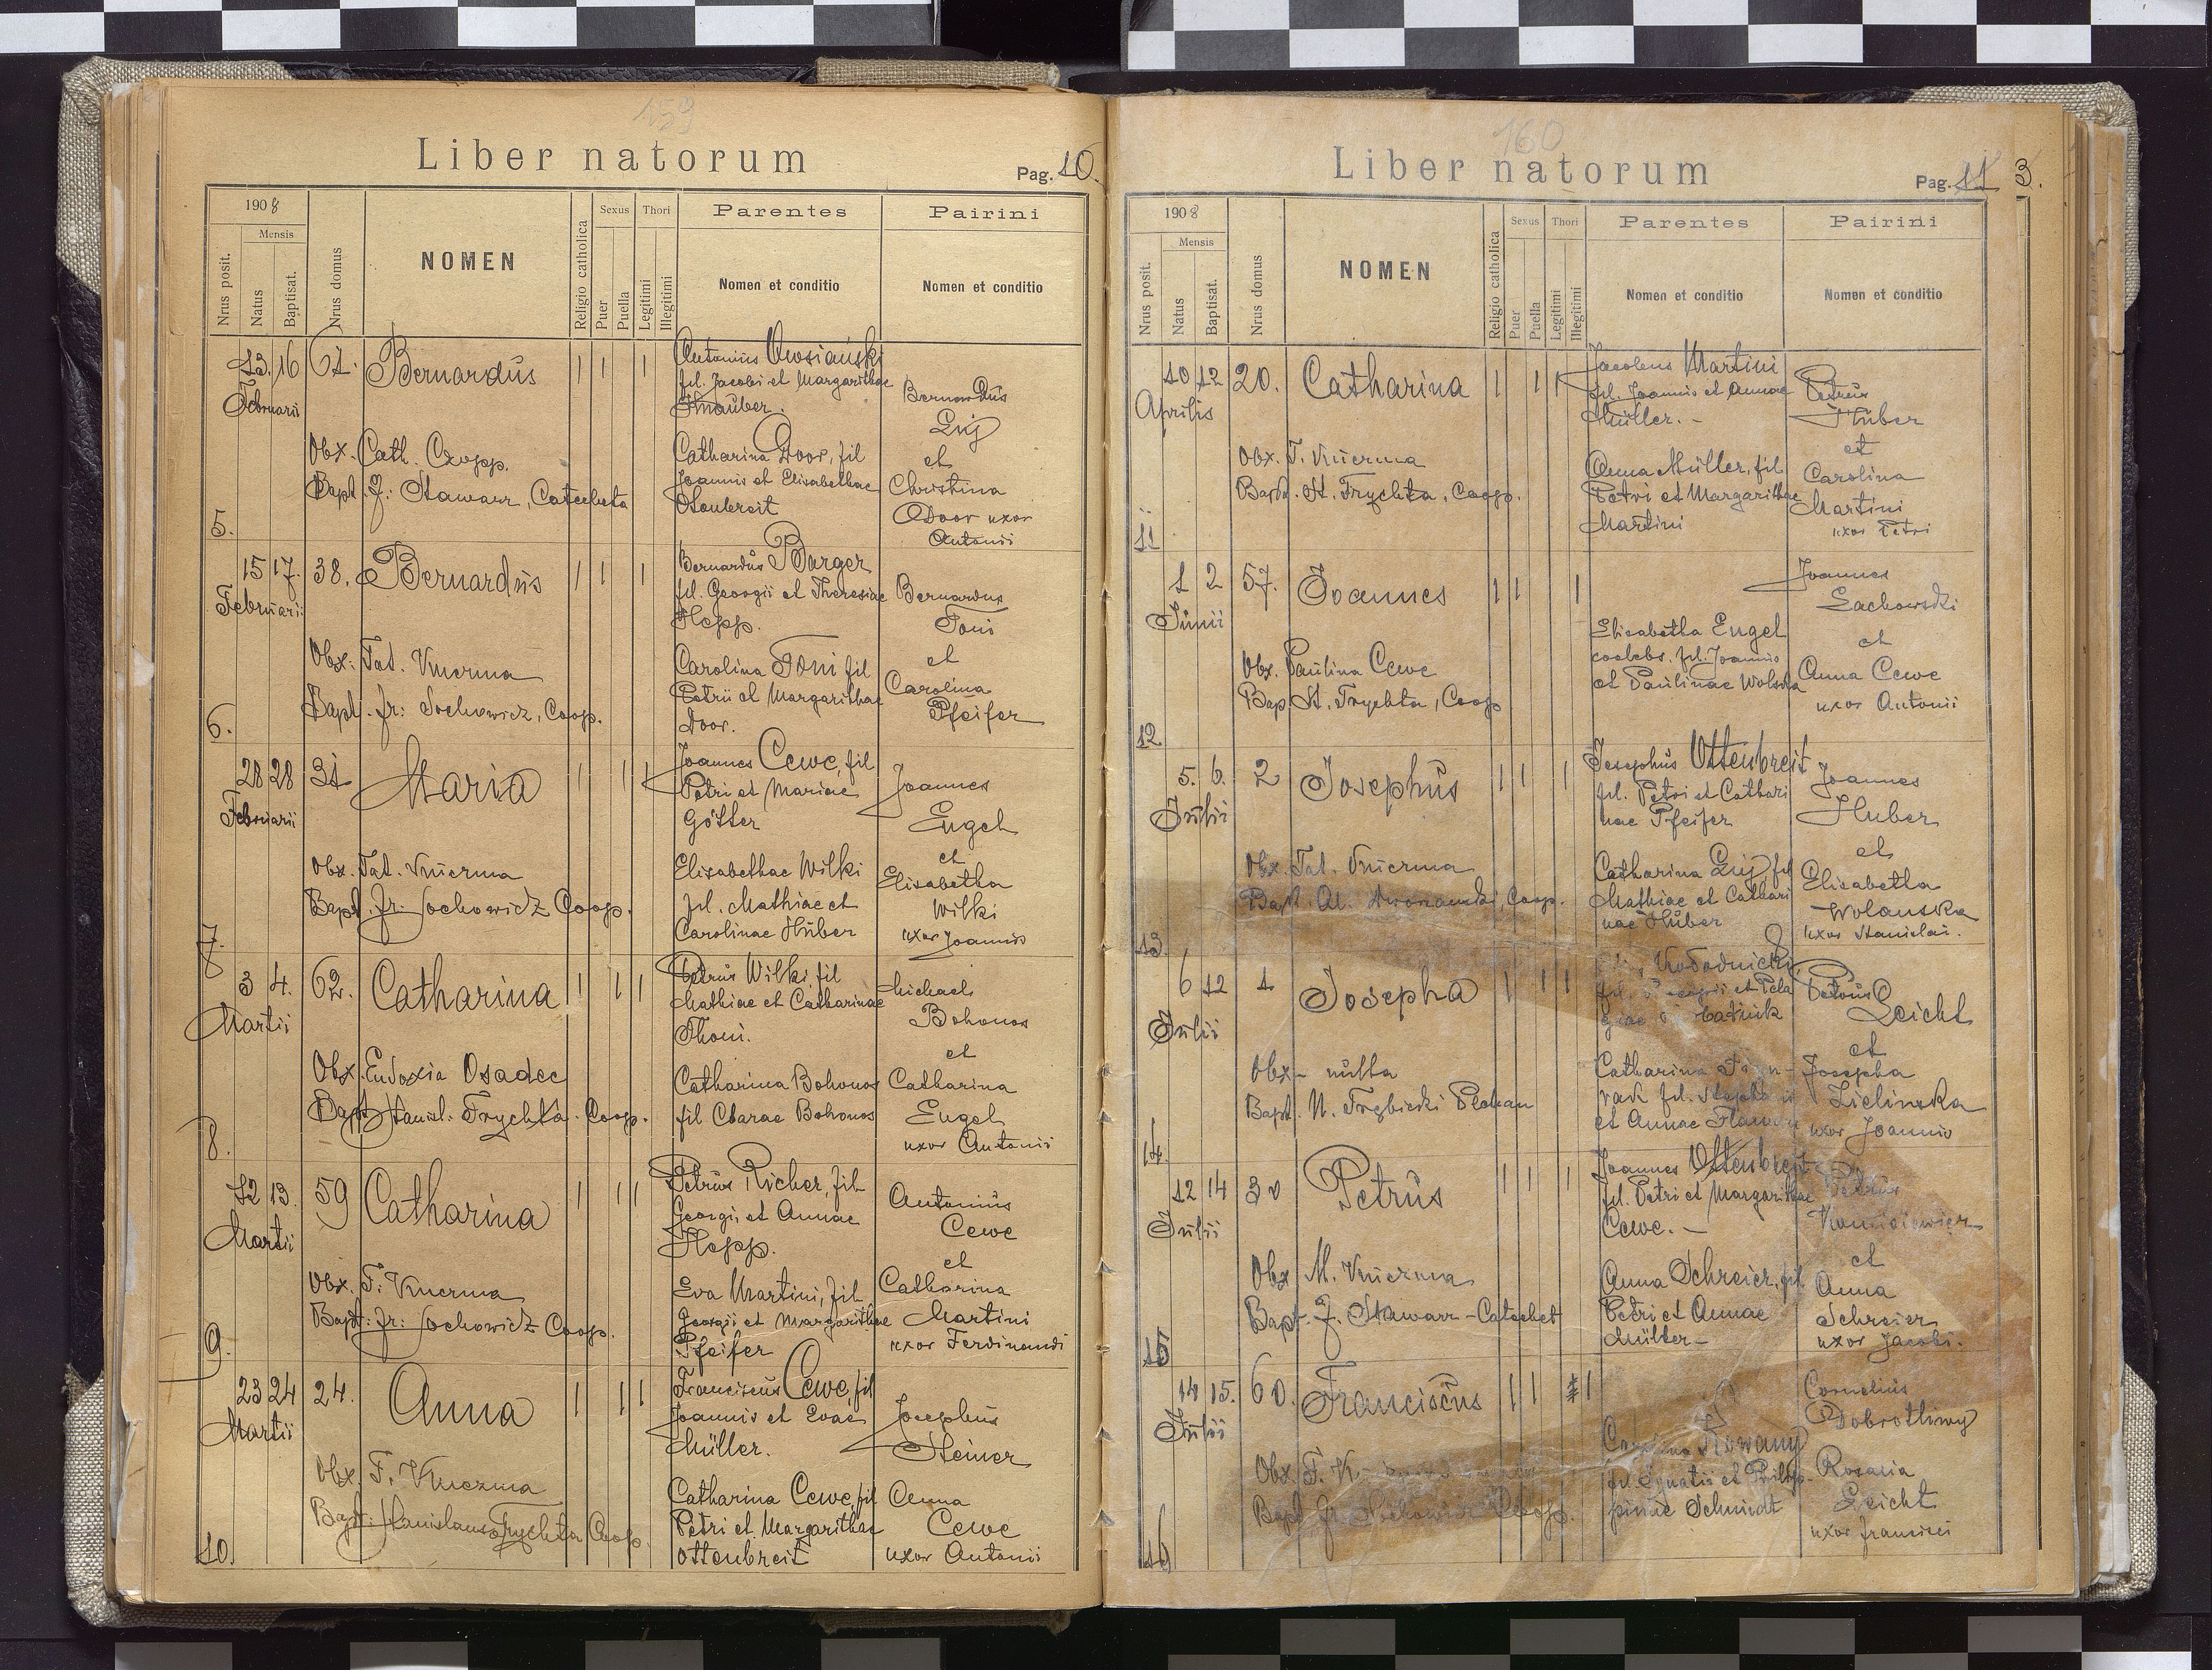 159
Liber natorum
Pag. 10.
1908
Mensis
Nrus posit.
Natus
Baptisat.
Nrus domus
NOMEN
Religio catholica
Sexus
Puer
Puella
Thori
Legitimi
Illegitimi
Parentes
Nomen et conditio
Pairini
Nomen et conditio
13. 16 61. Bernardus 1 1 1
Februarii
Antonius
fil. Jacobi et Margarithae
Bernardus
Luj
et
Christina
Door uxor
Antonii
Obx. Cath. Czopp.
Bapt. J: Stawarz, Catecheta
Catharina Door, fil
Joannis et Elisabethae
5.
15 17. 38. Bernardus 1 1 1
Februarii
Bernardus Barger
fil. Georgii et Theresiae
Hopp.
Bernardus
Toni
et
Carolina
Pfeifer
Obx: Tat. Kuczma
Bapt. fr: Sochowicz, Coop.
Carolina Toni fil
Petrii et Margarithae
Door.
6.
28 28 31 Maria 1 1 1
Februarii
Joannes Cewe, fil
Petri et Mariae
Götter
Joannes
Engel
et
Elisabetha
Wilki
uxor Joannis
Obx. Tat. Kuczma
Bapt. fr: Sochowicz Coop.
Elisabethae Wilki
fil. Mathiae et
Carolinae Huber
7.
3 4. 62. Catharina 1 1 1
Martii
Petrus Wilki, fil
Mathiae et Catharinae
Thoni.
Michael
Bohonos
et
Catharina
Engel
uxor Antonii
Obx. Eudoxia Osadec
Bapt. Stanisl: Trychta. Coop.
Catharina Bohonos
fil Clarae Bohonos
8.
12 13. 59 Catharina 1 1 1
Martii
Petrus Richer, fil
Georgii et Annae
Hopp.
Antonius
Cewe
et
Catharina
Martini
uxor Ferdinandi
Obx. T. Kuczma
Bapt: fr: Sochowicz Coop.
Eva Martini, fil
Georgii et Margarithae
Pfeifer
9.
23 24 24. Anna 1 1 1
Martii
Franciscus Cewe, fil
Joannis et Evae
Müller.
Josephus
Steiner
Anna
Cewe
uxor Antonii
Obx. T. Kuczma
Bapt: Stanislaus Trychta Coop.
Catharina Cewe, fil
Petri et Margarithae
Ottenbreit
10.
160
Liber natorum
Pag. 11 3.
1908
Mensis
Nrus posit.
Natus
Baptisat.
Nrus domus
NOMEN
Religio catholica
Sexus
Puer
Puella
Thori
Legitimi
Illegitimi
Parentes
Nomen et conditio
Pairini
Nomen et conditio
10 12 20. Catharina 1 1 1
Aprilis
Jacobus Martini
fil. Joannis et Annae
Müller. -
Petrus
Huber
et
Carolina
Martini
uxor Petri
Obx. T. Kuczma
Bapt. St. Trychta, Coop.
Anna Müller, fil
Petri et Margarithae
Martini
11
1 2 57. Joannes 1 1 1
Junii
Joannes
Lachowski
et
Anna Cewe
uxor Antonii
Elisabetha Engel
coelebs. fil. Joannis
et Paulinae Wolska
Obx. Paulina Cewe
Bap. St. Trychta, Coop
12
5. 6. 2 Josephus 1 1 1
Julii
Josephus Ottenbreit
fil. Petri et Cathari
nae Pfeifer
Joannes
Huber
et
Elisabetha
Wolanska
uxor Stanislai.
Obx. Tat. Kuczma
Bapt. Al. Coop.
Catharina Luj, fil
Mathiae et Cathari
nae Huber
13.
6 12 1 Josepha 1 1 1
Julii
Petrus
Leicht
et
Josepha
Zielinska
uxor Joannis
Obx - nulla
Bapt. N.
Catharina
et Annae
14.
12 14 30 Petrus 1 1 1
Julii
Joannes Ottenbreit
fil. Petri et Margarithae
Cewe. -
Petrus
et
Anna
Schreier
uxor Jacobi.
Obx M. Kuczma
Bapt. J. Stawarz - Catechet
Anna Schreier, fil.
Petri et Annae
Müller -
15
14 15. 60. Franciscus 1 1 1
Julii
Cornelius
Dobrotliwy
Rosalia
Leicht
uxor Francisci
fil Ignatii et Philip-
pinae Schmidt
Obx. T.
Bapt fr. Sochowicz Coop.
16